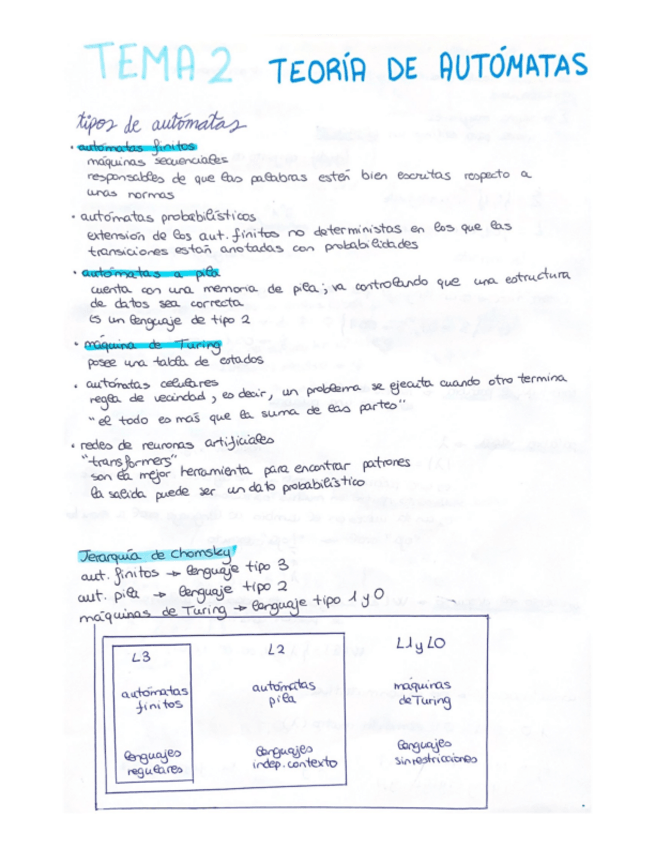 TEMA 2 TEORÍA DE AUTÓMATAS
tipos de autómatas
· autómatas finitos
máquinas secuenciales
responsables de que las palabras estén bien escritas respecto a
unas normas
· autómatas probabilísticos
extensión de los aut. finitos no deterministas en los que las
transiciones están anotadas con probabilidades
· autómatas a pila
cuenta con una memoria de pila; va controlando que una estructura
de datos sea correcta
es un lenguaje de tipo 2
· máquina de Turing
posee una tabla de estados
· autómatas celulares
regla de vecindad, es decir, un problema se ejecuta cuando otro termina
"el todo es más que la suma de las partes"
· redes de neuronas artificiales
"transformers"
son la mejor herramienta para encontrar patrones
la salida puede ser un dato probabilístico
Jerarquía de Chomsky
aut. finitos → lenguaje tipo 3
aut. pila → lenguaje tipo 2
máquinas de Turing → lenguaje tipo 1 y 0
L3
autómatas
finitos
lenguajes
regulares
L2
autómatas
pila
lenguajes
indep. contexto
L1 y L0
máquinas
de Turing
lenguajes
sin restricciones